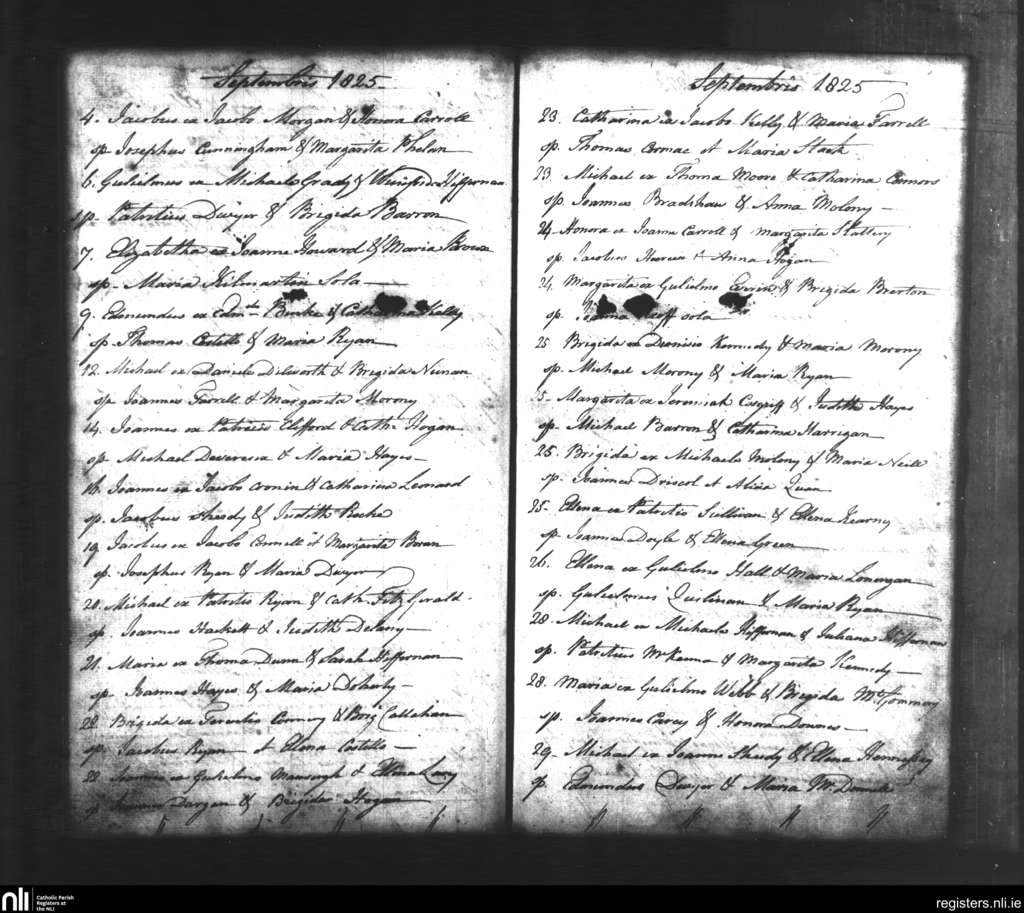 Septembris 1825
4. Jacobus ex Jacobo Morgan & Honora Carroll
sp. Josephus Cunningham & Margarita Phelan
6. Gulielmus ex Michaele Grady & Winifrida Heffernan
sp. Patritius Dwyer & Brigida Barron
7. Elizabetha ex Joanne Howard & Maria
sp. Maria Kilmartin Sola
9. Edmundus ex Edm. Burke & Catharina Kelly
sp. Thomas Costello & Maria Ryan
12. Michael ex Daniele Dilworth & Brigida Nunan
sp. Joannes Farrell & Margarita Morony
14. Joannes ex Patricio Clifford & Cath. Hogan
sp. Michael Devereux & Maria Hayes
Joannes ex Jacobo Cronin & Catharina Leonard
sp. Jacobus Sheedy & Judith Roche
19 Jacobus ex Jacobo Connell et Margarita Boran
sp. Josephus Ryan & Maria Dwyer
Michael ex Patritio Ryan & Cath. FitzGerald
sp. Joannes Hackett & Judith Delany
21. Maria ex Thoma Dunn & Sarah Heffernan
sp. Joannes Hayes & Maria Doherty
22 Brigida ex Terentio & Brig. Callahan
sp. Jacobus Ryan et Elena Costello
22. Joannes ex Gulielmo & Ellena
Joannes Dargan & Brigida Hogan
Septembris 1825
23. Catharina ex Jacobo Kelly & Maria Farrell
sp. Thomas Cormac et Maria Stack
23. Michael ex Thoma Moore & Catharina Connors
sp. Joannes Bradshaw & Anna Molony
24. Honora ex Joanne Carroll & Margarita Slattery
sp. Jacobus & Anna Hogan
24. Margarita ex Gulielmo & Brigida Brereton
sp. sola
25 Brigida ex Dionisio Kennedy & Maria Morony
sp. Michael Morony & Maria Ryan
Margarita ex Jeremiah Cosgriff & Judith Hayes
sp. Michael Barron & Catharina Harrigan
25. Brigida ex Michaele Molony & Maria Neill
sp. Joannes Driscol et Alicia Quin
25. Ellena ex Patritio Sullivan & Ellena Kearny
sp. Joannes Doyle & Ellena Green
26. Ellena ex Gulielmo Hall & Maria Lonergan
sp. Gulielmus Quilinan & Maria Ryan
28. Michael ex Michaele Heffernan & Juliana Heffernan
sp. Patritius McKenna & Margarita Kennedy
28. Maria ex Gulielmo Webb & Brigida
sp. Joannes Carey & Honora Downes
29. Michael ex Joanne Sheedy & Ellena Hennessy
sp. Edmundus Dwyer & Maria
nli
Catholic Parish
Registers at
the NLI
registers.nli.ie